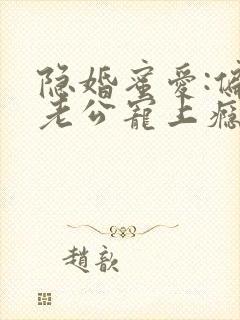 隐婚蜜爱:偏
老公宠上瘾
趙歆